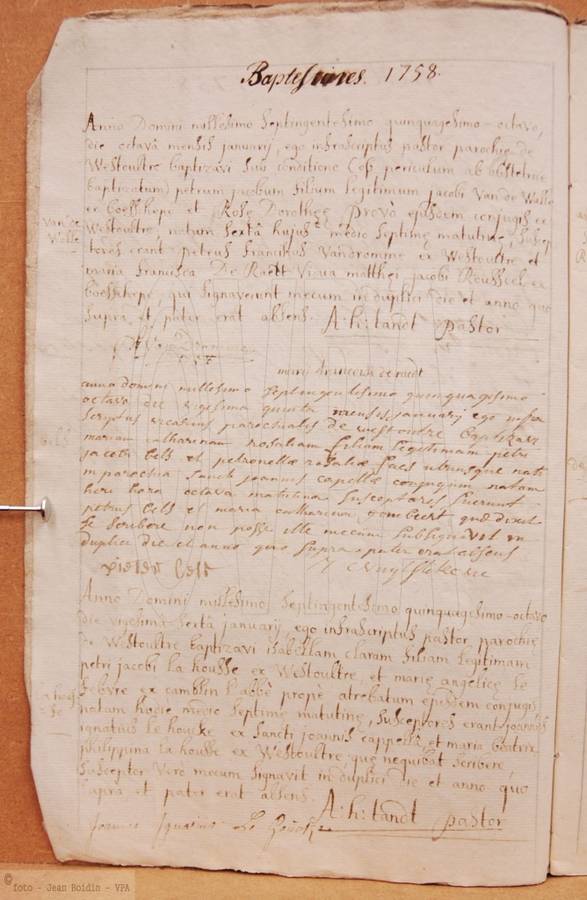 Baptesmes. 1758.
Anno Domini millesimo Septingentesimo quinquagesimo-octavo,
die octavâ mensis januarij, ego infrascriptus pastor parochiæ de
Westoultre baptizavi sub conditione (ob periculum ab obstetrice
baptizatum) petrum jacobum filium legitimum jacobi Van de Walle
ex boeschepe et Rosæ Dorotheæ Provô ejusdem conjugis ex
Westoultre, natum Sextâ hujus mediâ Septimæ matutinæ, Suscep
tores erant petrus Franciscus Vandromme ex Westoultre et
maria Francisca De Raedt Vidua matthei jacobi Roussel ex
boeschepe, qui Signaverunt mecum in duplici die et anno quo
Supra et pater erat absens. A:h: tandt pastor
Van de
Walle
marij francoise de raedt
anno domini millesimo Septingentesimo quinquagesimo
octavo die vigesima quinta mensis januarij ego infra
Scriptus vicarius parochialis de westoutre baptizavi
mariam catharinam rosaliam filiam legitimam petri
jacobi Cels et petronellæ rosaliæ
in parochia Sancti joannis capellæ conjugum natam
heri hora octava matutina Susceptores fuerunt
petrus Cels et maria catharina quæ dixit
Se Scribere non posse ille mecum Subsignavit in
duplici die et anno quo Supra pater erat absens
Anno Domini millesimo Septingentesimo quinquagesimo-octavo
die vigesima Sextâ januarij ego infrascriptus pastor parochiæ
de Westoultre baptizavi isabellam claram filiam legitimam
petri jacobi la housse ex Westoultre, et mariæ angelicæ le
Febvre ex camblin l'abbé propè atrebatum ejusdem conjugis
natam hodie mediâ Septimæ matutinæ, Susceptores erant joannes
ignatius le houcke ex Sancti joannis cappellâ et maria beatrix
philippina la housse ex Westoultre, quæ nequibat Scribere,
Susceptor Vero mecum Signavit in duplici die et anno quo
Supra et pater erat absens. A:h: tandt pastor
Joannes Ignatius Le
© foto - Jean Boidin - VPA